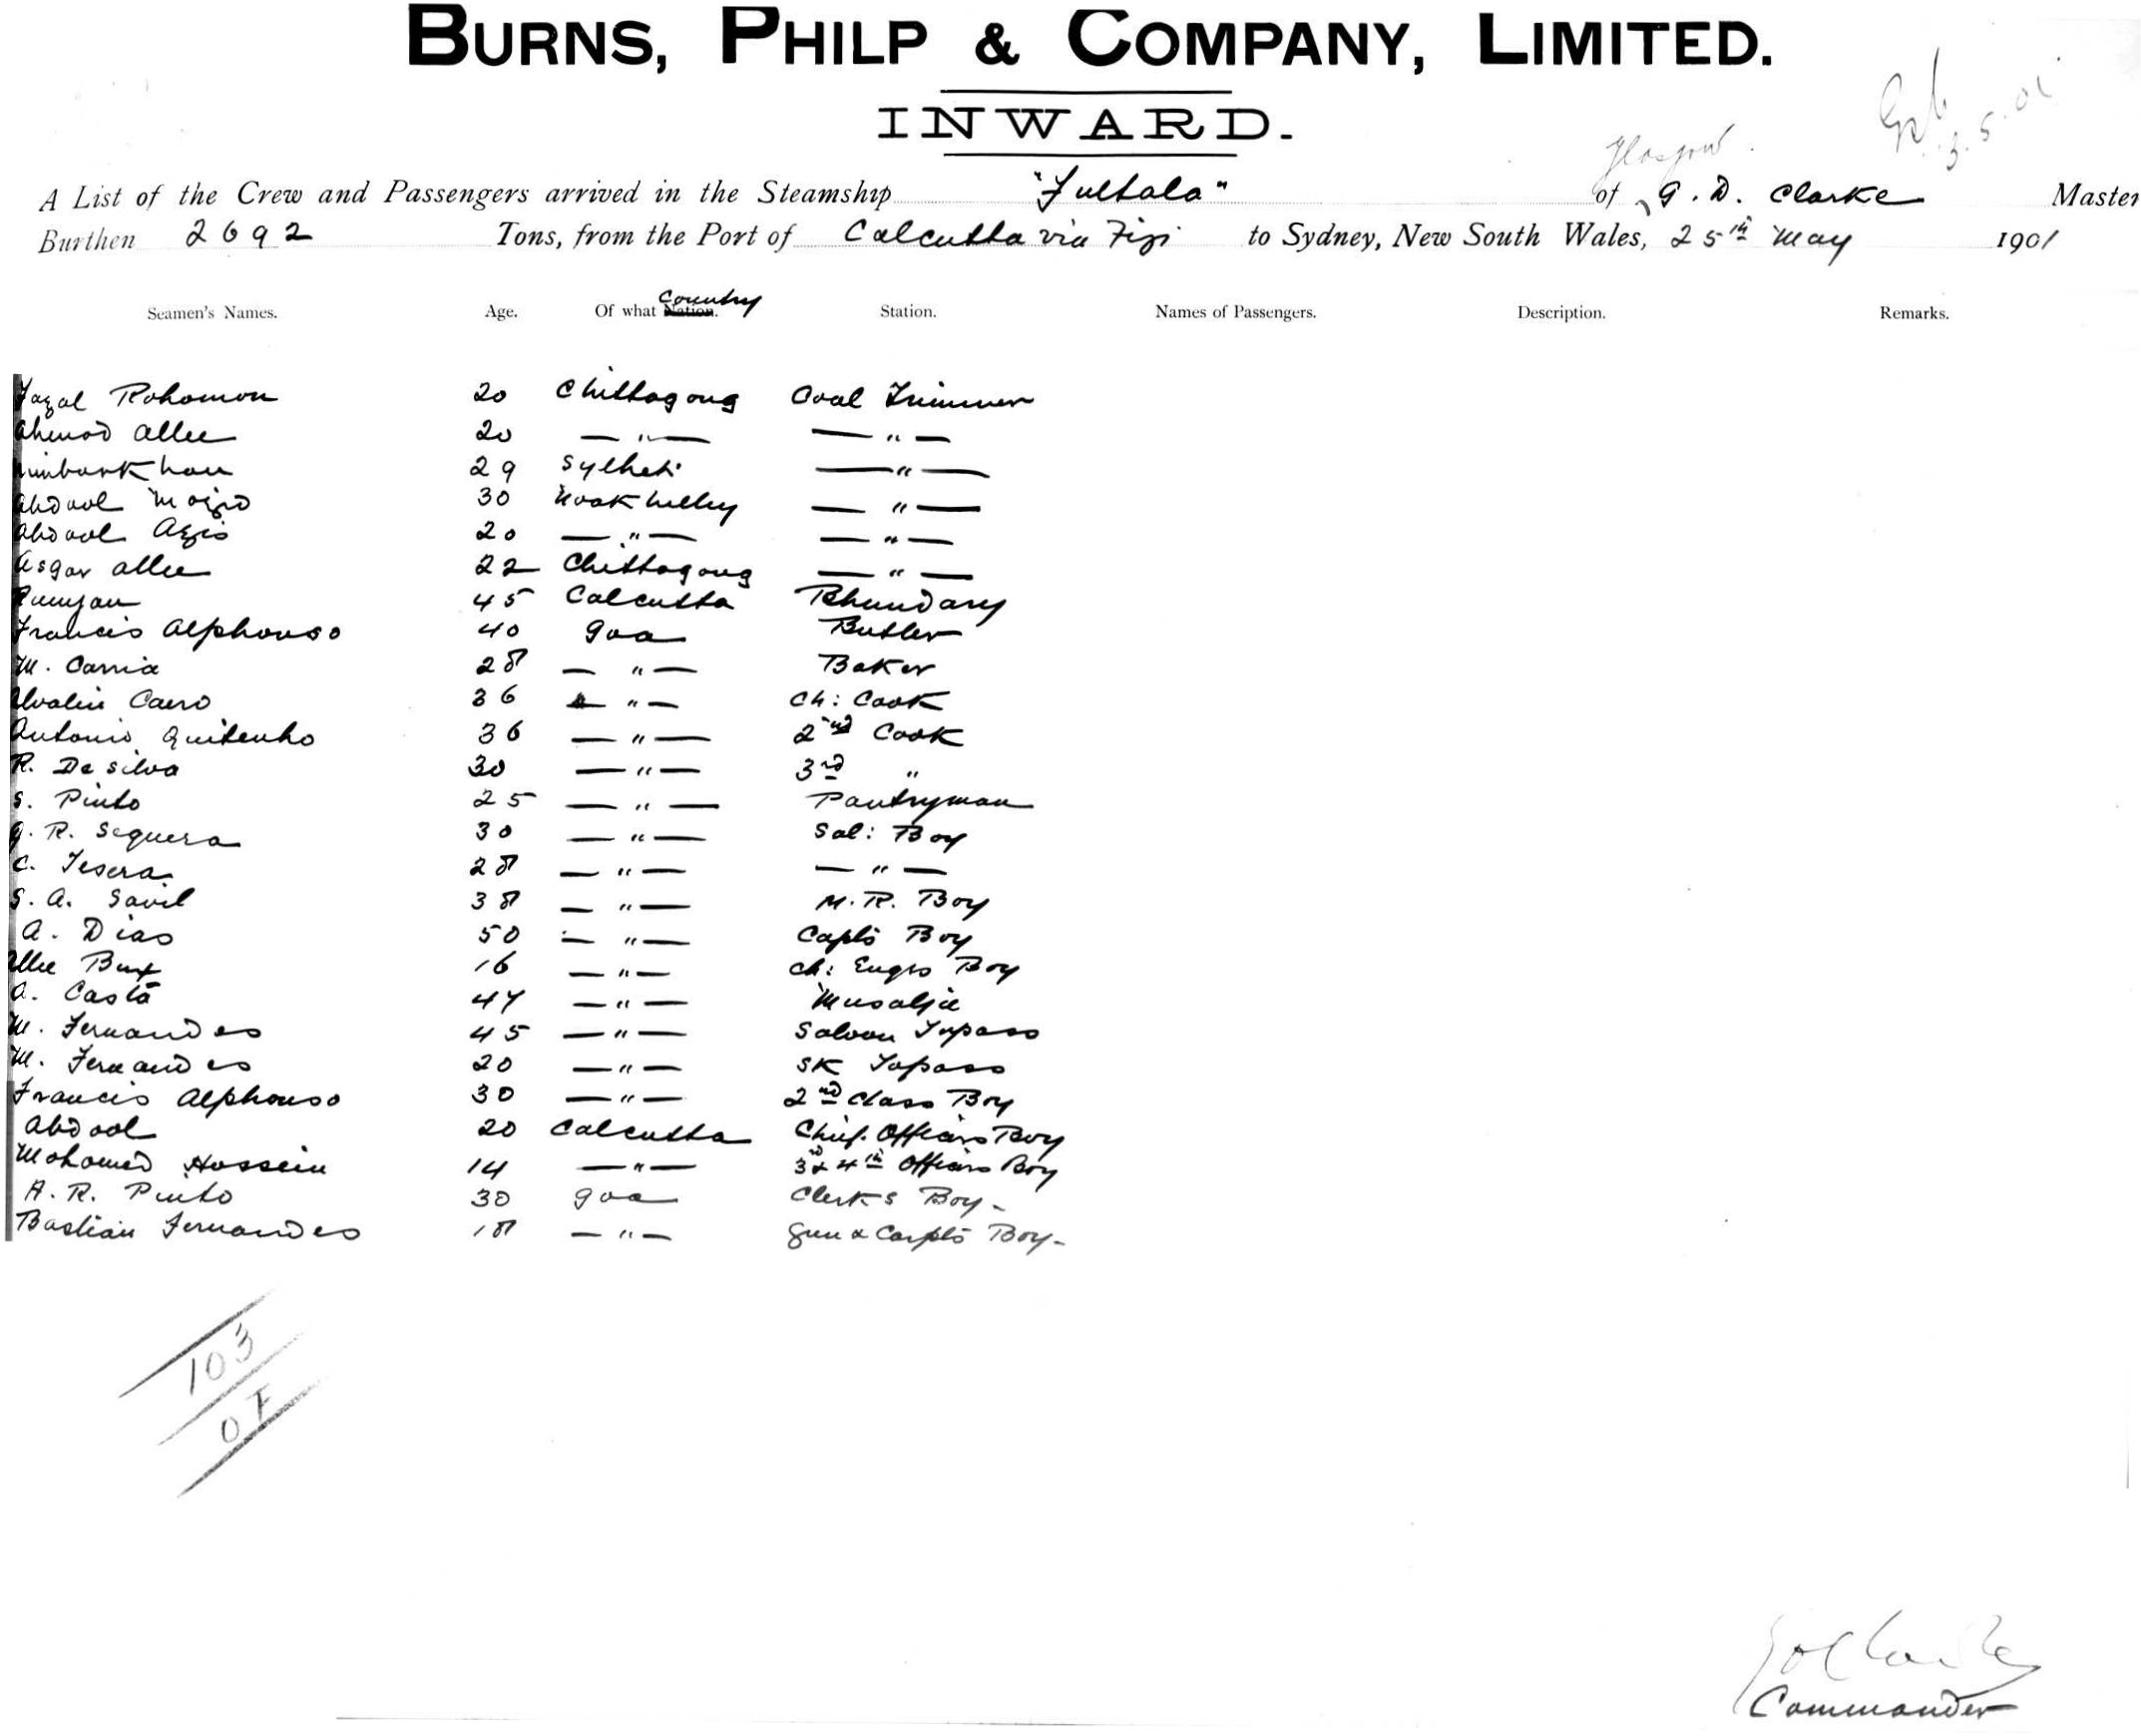 BURNS, PHILP & COMPANY, LIMITED.
INWARD.
3.5.01
Glasgow
A List of the Crew and Passengers arrived in the Steamship "Fultala" of G. D. Clarke Master
Burthen 2692 Tons, from the Port of Calcutta via Fiji to Sydney, New South Wales, 25th May 1901
Country
Seamen's Names. Age. Of what Nation. Station. Names of Passengers. Description. Remarks.
Fazal Rohomon 20 Chittagong Coal Trimmer
Ahmod Allee 20 — " — — " —
29 Sylhet — " —
Abdool Mozid 30 Noakhelley — " —
Abdool Azis 20 — " — — " —
Asgar Allee 22 Chittagong — " —
Rumjan 45 Calcutta Bhundary
Francis Alphonso 40 Goa Butler
M. Carria 28 — " — Baker
Caero 36 — " — Ch: Cook
Antonio Quitenho 36 — " — 2nd Cook
R. De Silva 30 — " — 3rd "
S. Pinto 25 — " — Pantryman
G. R. Sequera 30 — " — Sal: Boy
C. Tesera 28 — " — — " —
S. A. Savil 38 — " — M. R. Boy
A. Dias 50 — " — Capts Boy
Allee Bux 16 — " — Ch: Engrs Boy
A. Costa 47 — " — Musaljie
M. Fernandes 45 — " — Saloon Topass
M. Fernandes 20 — " — SK Topass
Francis Alphonso 30 — " — 2nd Class Boy
Abdool 20 Calcutta Chief Officers Boy
Mohomed Hossein 14 — " — 3rd & 4th Officers Boy
A. R. Pinto 30 Goa Clerks Boy -
Bastian Fernandes 18 — " — Gun & Carpts Boy -
103
OI
G D Clarke
Commander